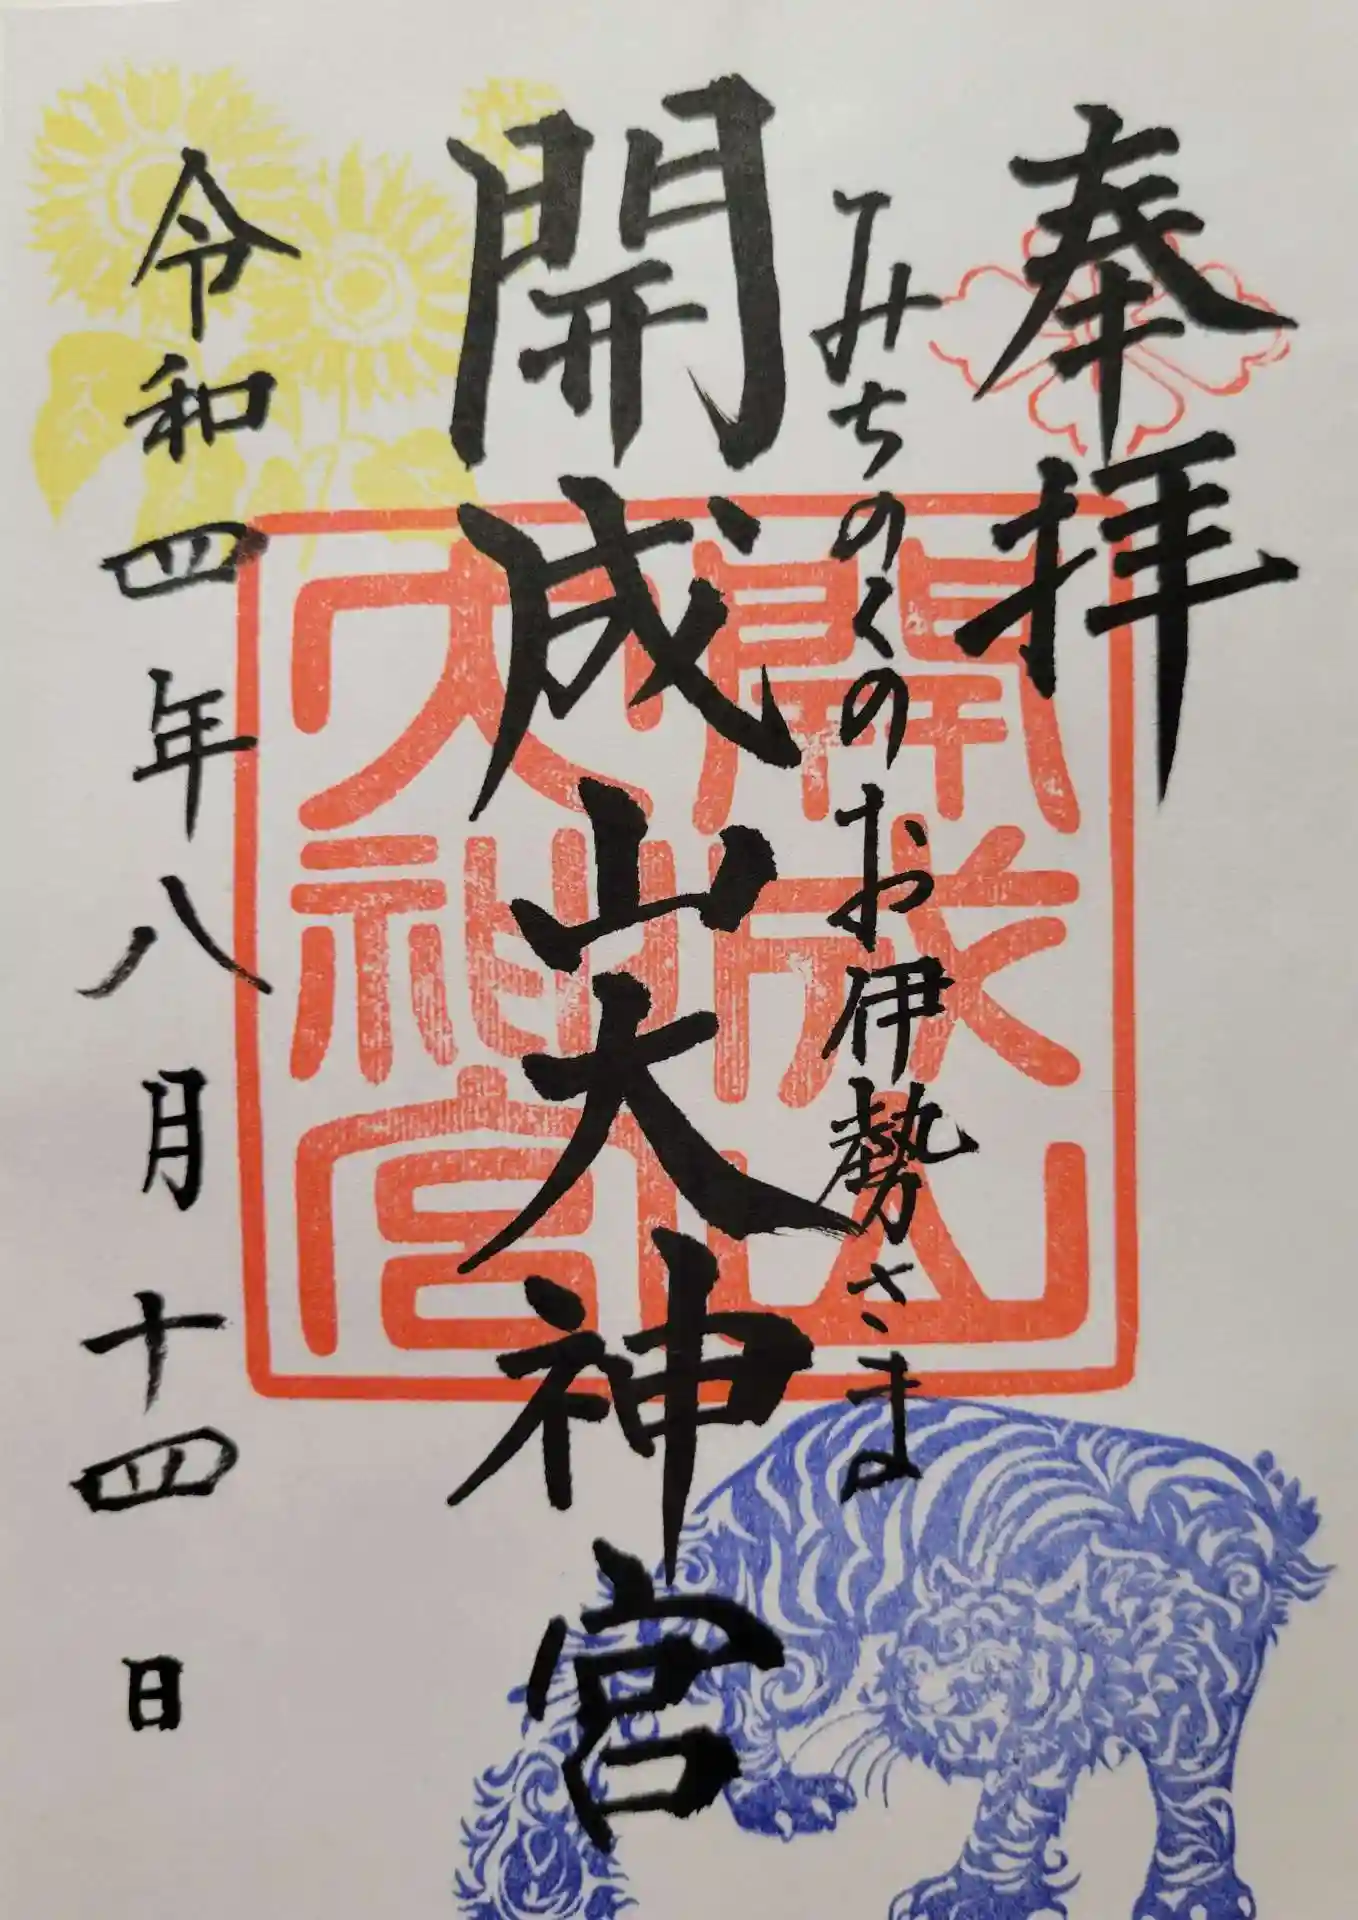 奉拝
みちのくのお伊勢さま
開成山大神宮
開成山
大神宮
令和四年八月十四日